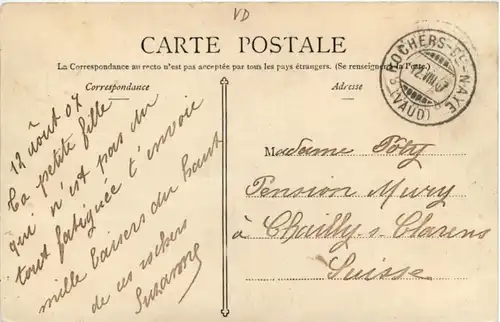 VD
CARTE POSTALE
La Correspondance au recto n'est pas acceptée par tous les pays étrangers. (Se renseigner à la Poste.)
Correspondance
Adresse
ROCHERS-DE-NAYE
12.VIII.07
(VAUD)
12 août 07
La petite fille
qui n'est pas du
tout fatiguée t'envoie
mille baisers du haut
de ces rochers
Suzanne
Madame
Pension Mury
à Chailly s. Clarens
Suisse